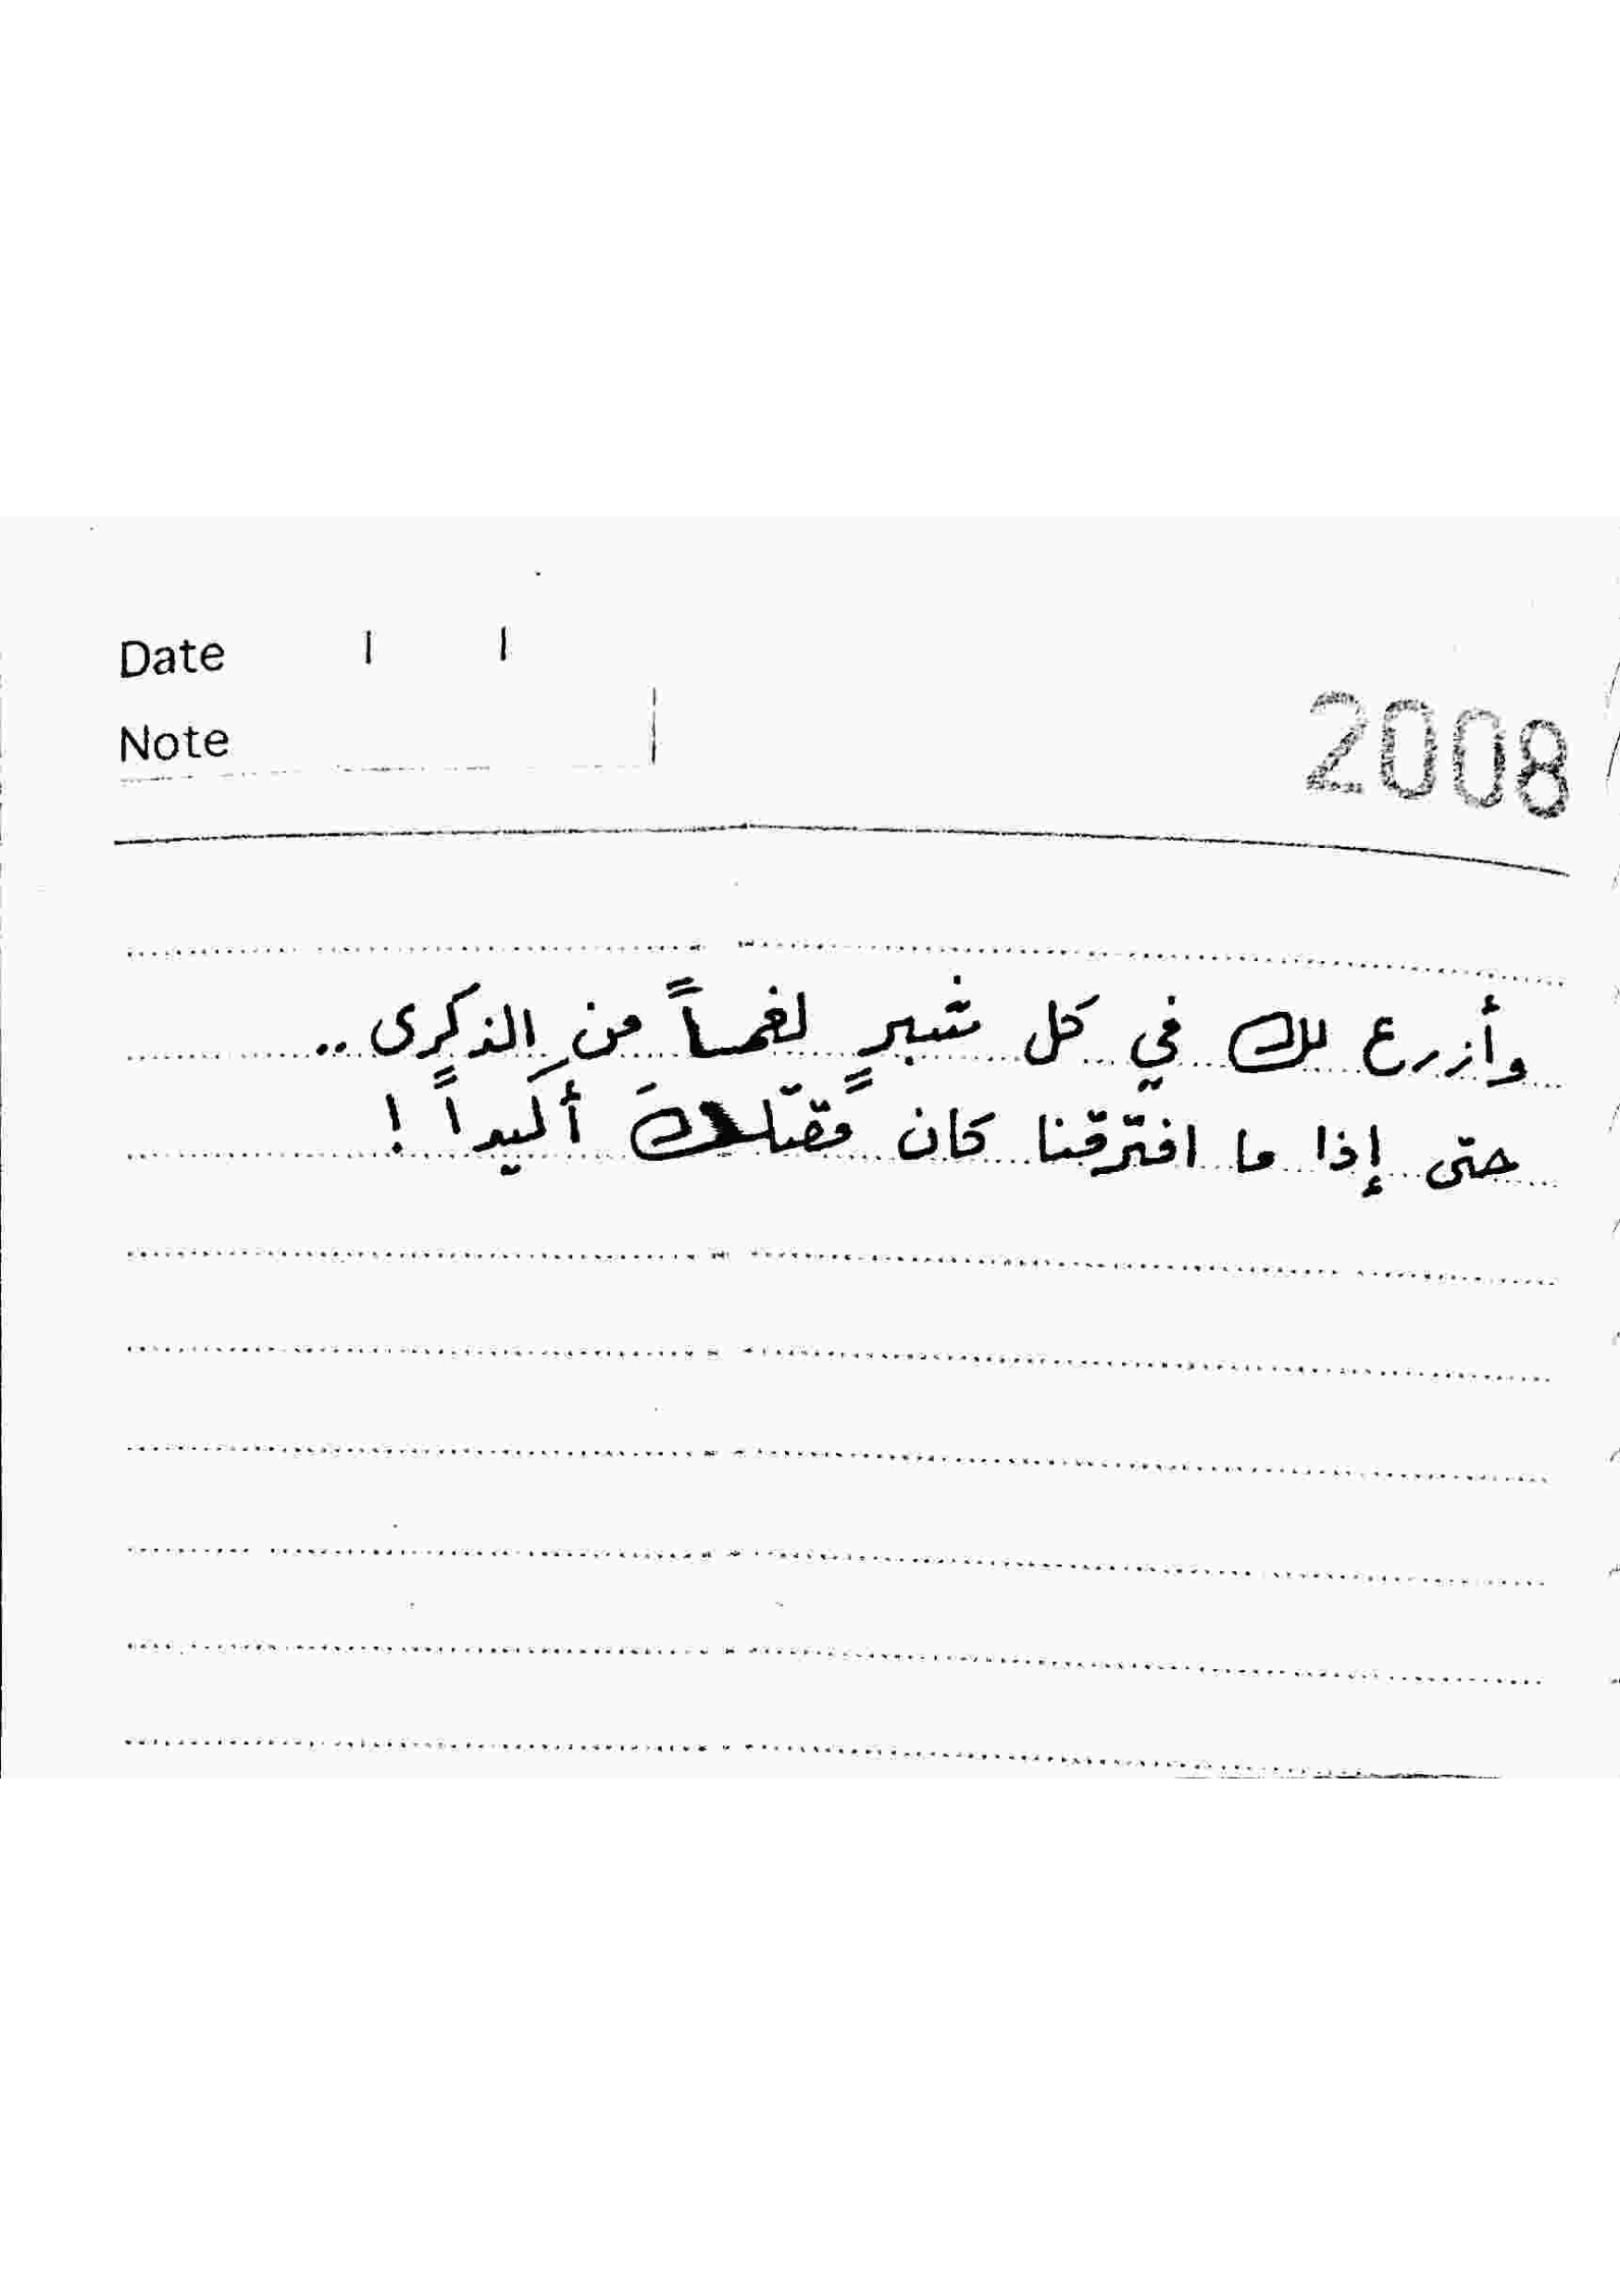 Date / /
Note
2008
وأزرع لك في كل شبرٍ لغماً من الذكرى ..
حتى إذا ما افترقنا كان مقتلكَ أكيداً !